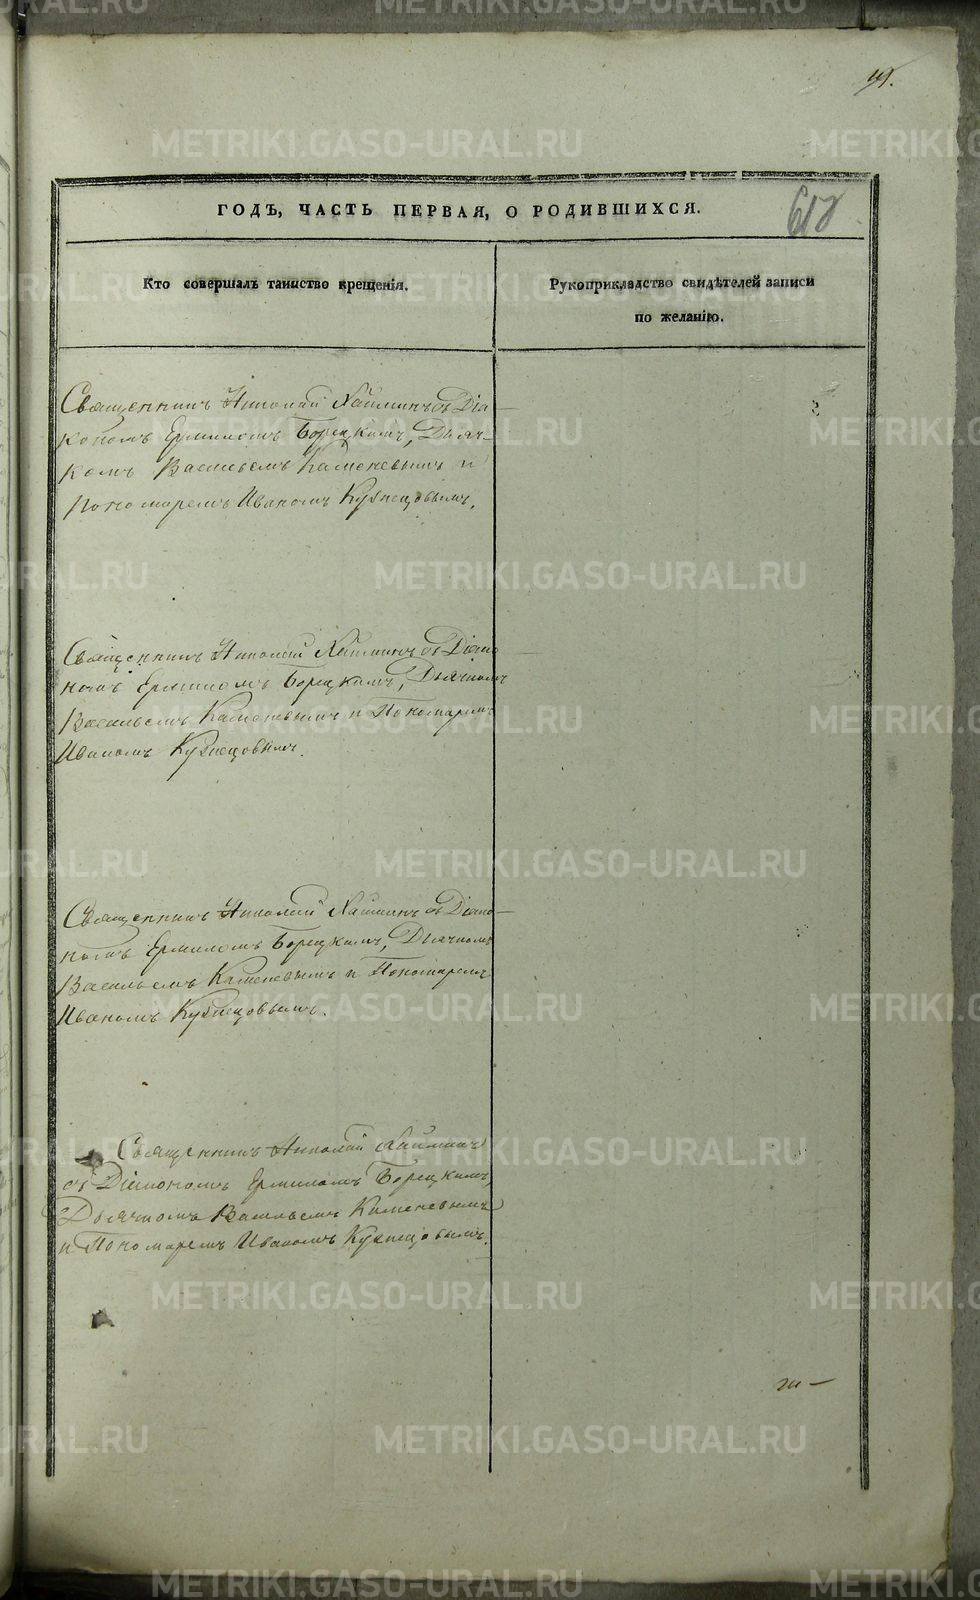 91.
618
ГОДЪ, ЧАСТЬ ПЕРВАЯ, О РОДИВШИХСЯ.
Кто совершалъ таинство крещенія.
Рукоприкладство свидѣтелей записи
по желанію.
Священникъ Николай съ Діа-
кономъ Ермиломъ Борецкимъ, Дьяч-
комъ Васильемъ Каменевымъ и
Пономаремъ Иваномъ Кузнецовымъ.
Священникъ Николай съ Діако-
номъ Ермиломъ Борецкимъ, Дьячкомъ
Васильемъ Каменевымъ и Пономаремъ
Иваномъ Кузнецовымъ.
Священникъ Николай съ Діако-
номъ Ермиломъ Борецкимъ, Дьячкомъ
Васильемъ Каменевымъ и Пономаремъ
Иваномъ Кузнецовымъ.
Священникъ Николай
съ Діакономъ Ермиломъ Борецкимъ,
Дьячкомъ Васильемъ Каменевымъ
и Пономаремъ Иваномъ Кузнецовымъ.
METRIKI.GASO-URAL.RU